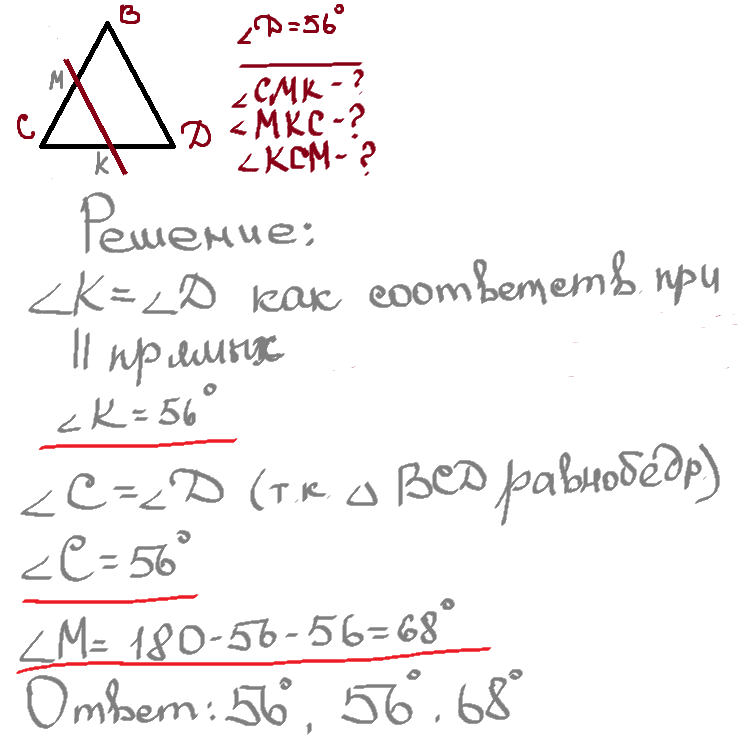 B
∠D=56°
M
∠CMK-?
C
D
∠MKC-?
K
∠KCM-?
Решение:
∠K=∠D как соответств при
|| прямых
∠K=56°
∠C=∠D (т.к. △ BCD равнобедр)
∠C=56°
∠M= 180-56-56=68°
Ответ: 56°, 56°. 68°